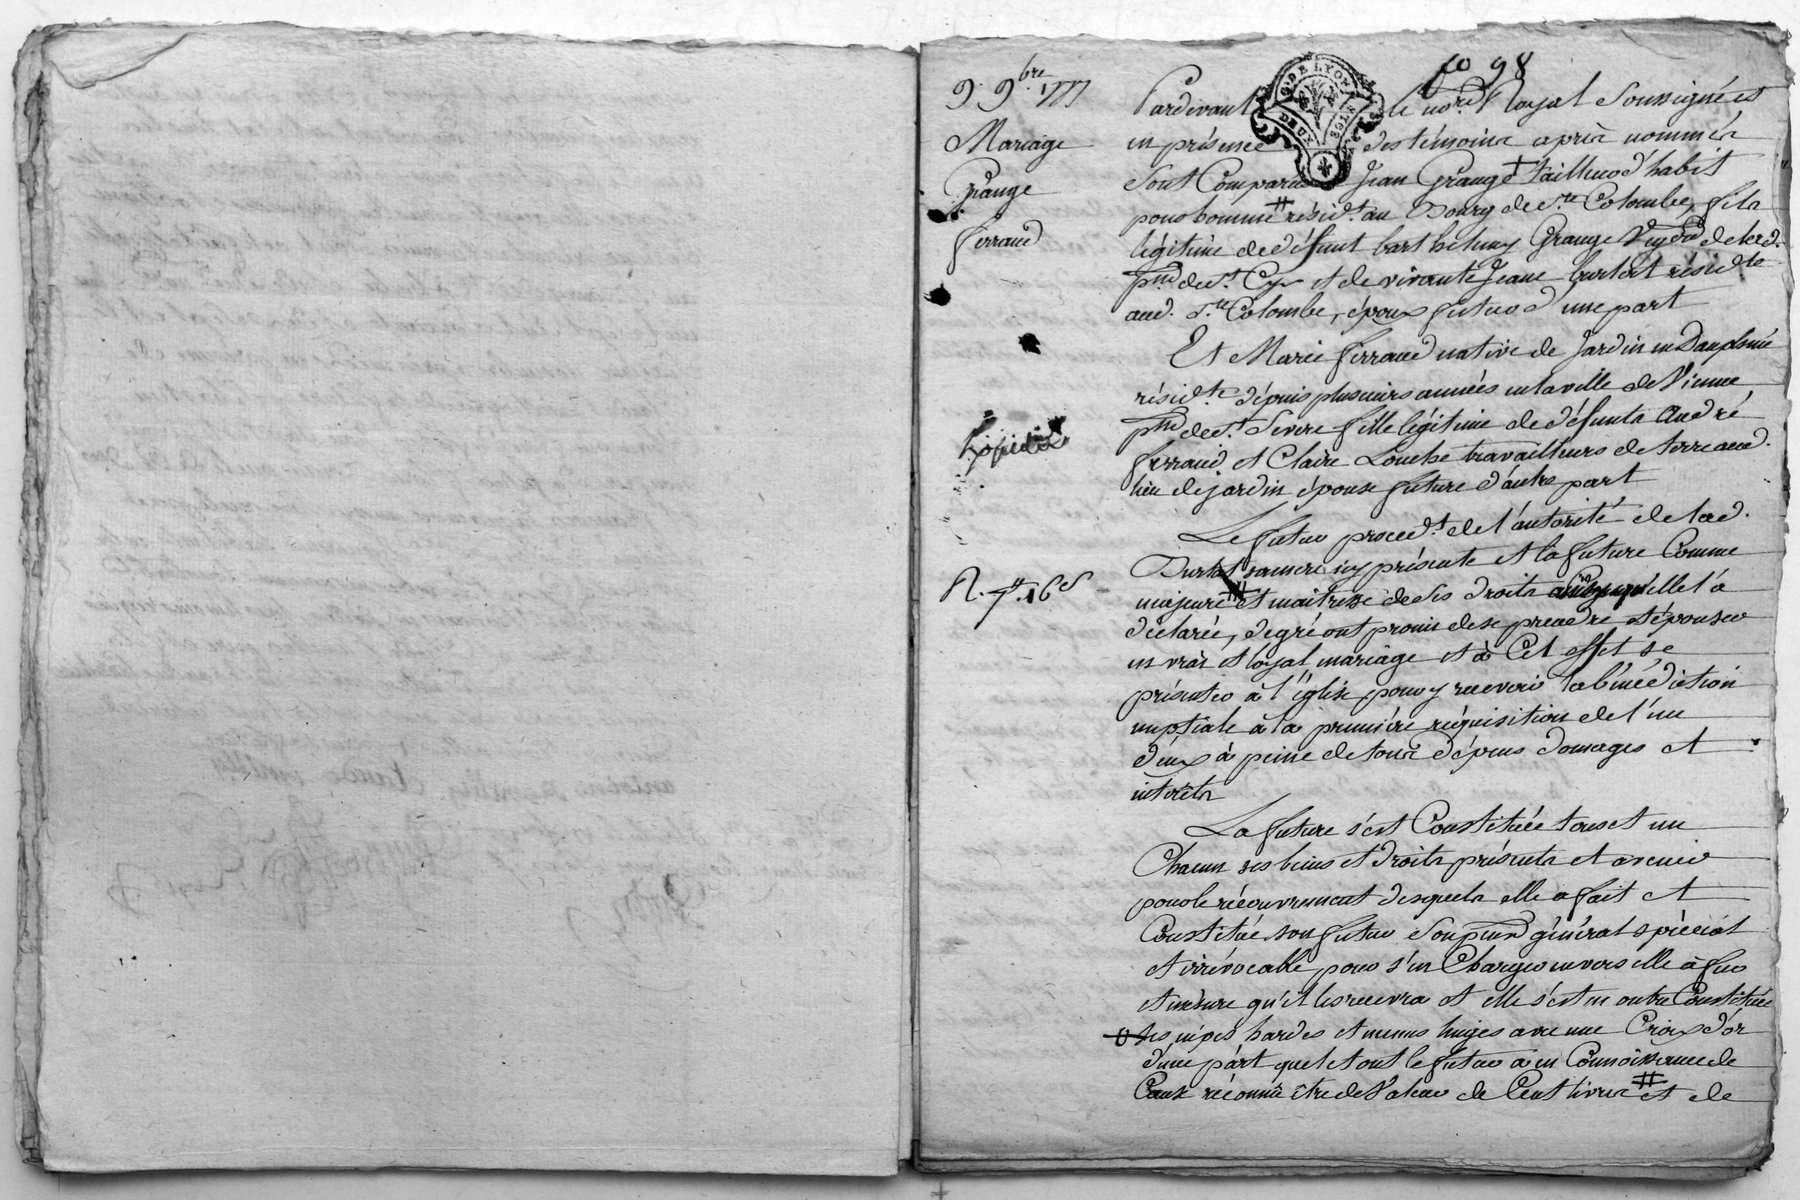 fo 98
9. 9bre. 1777
Mariage
Grange
ferraud
Expédié
G. DE LYON
DEUX SOLS
Pardevant le nore Royal Soussigné et
en présence des témoins après nommés
Sont Comparus Jean Grange + tailleur d'habit
pour homme # résidt. au Bourg de Ste Colombe, fils
légitime de défunt barthelemy Grange de lad.
psse de St. Cyr et de vivante Jeane burlat résidte
aud. Ste Colombe, époux futur d'une part
Et Marie ferraud native de Jardin en Dauphiné
résidte. dépuis plusieurs années en la ville de Vienne
psse de St. Sevère fille légitime de défunts André
ferraud et Claire Louche travailleurs de terre aud.
lieu de jardin épouse future d'autre part
Le futur procedt. de l'autorité de lad.
Burlat sa mere icy présente et la future Comme
majeure # et maitresse de ses droits ainsy qu'elle l'a
déclarée, de gré ont promis de se prendre et épouser
en vrai et loyal mariage et à Cet effet se
présenter à l'église pour y recevoir la bénédiction
nuptiale à la première réquisition de l'un
d'eux à peine de tous dépens domages et
intérêts
La future s'est Constituée tous et un
Chacun ses biens et droits présents et avenir
pour le récouvrement desquels elle a fait et
Constitué son futur Son procur général spécial
et irrévocable pour s'en Charger envers elle à fur
et mesure qu'il les recevra et elle s'est en outre Constituée
ses nipes hardes et menus linges avec une Croix d'or
d'une part que le tout le futur a en Connoissance de
Cause réconnu être de Valeur de Cent livres # et de